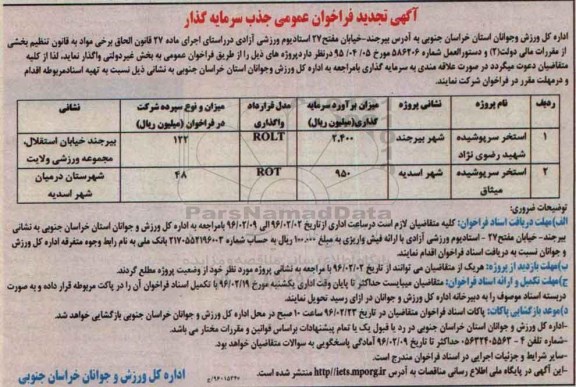 آگهی تجدید فراخوان عمومی جذب سرمایه گذار
اداره کل ورزش وجوانان استان خراسان جنوبی به آدرس بیرجند-خیابان مفتح۲۷ استادیوم ورزشی آزادی درراستای اجرای ماده ۲۷ قانون الحاق برخی مواد به قانون تنظیم بخشی
از مقررات مالی دولت(۲) و دستورالعمل شماره ۵۸۶۲۰۶ مورخ ۰۵/ ۰۴/ ۹۵ درنظر دارد پروژه های ذیل را از طریق فراخوان عمومی به بخش غیردولتی واگذار نماید، لذا از کلیه
متقاضیان دعوت میگردد در صورت علاقه مندی به سرمایه گذاری بامراجعه به اداره کل ورزش وجوانان استان خراسان جنوبی به نشانی ذیل نسبت به تهیه اسنادمربوطه اقدام
و درمهلت مقرر در فراخوان شرکت نمایند.
ردیف نام پروژه نشانی پروژه میزان برآورد سرمایه گذاری(میلیون ریال) مدل قرارداد واگذاری میزان و نوع سپرده شرکت در فراخوان (میلیون ریال) نشانی
۱ استخر سرپوشیده شهید رضوی نژاد شهر بیرجند ۲,۴۰۰ ROLT ۱۲۲ بیرجند خیابان استقلال، مجموعه ورزشی ولایت
۲ استخر سرپوشیده میثاق شهر اسدیه ۹۵۰ ROT ۴۸ شهرستان درمیان شهر اسدیه
توضیحات ضروری:
الف)مهلت دریافت اسناد فراخوان: کلیه متقاضیان لازم است درساعت اداری ازتاریخ ۹۶/۰۲/۰۲ الی ۹۶/۰۲/۰۹ بامراجعه به اداره کل ورزش و جوانان استان خراسان جنوبی به نشانی
بیرجند- خیابان مفتح۲۷ - استادیوم ورزشی آزادی با ارائه فیش واریزی به مبلغ ۱۰۰,۰۰۰ ریال به حساب شماره ۲۱۷۰۵۵۲۱۹۶۰۰۲ بانک ملی به نام رابط وجوه متفرقه اداره کل ورزش
و جوانان نسبت به دریافت اسناد فراخوان اقدام نمایند.
ب)مهلت بازدید از پروژه: هریک از متقاضیان می توانند از تاریخ ۹۶/۰۲/۰۲ با مراجعه به نشانی پروژه مورد نظر خود از وضعیت پروژه مطلع گردند.
ج)مهلت تکمیل و ارائه اسناد فراخوان: متقاضیان میبایست حداکثر تا پایان وقت اداری یکشنبه مورخ ۹۶/۰۲/۱۹ با تکمیل اسناد فراخوان آن را در پاکت مربوطه قرار داده و به صورت
دربسته اسناد موصوف را به دبیرخانه اداره کل ورزش و جوانان در ازای رسید تحویل نمایند.
د)موعد بازگشایی پاکات: پاکات اسناد فراخوان متقاضیان در تاریخ ۹۶/۰۲/۲۳ ساعت ۱۰ صبح در محل اداره کل ورزش و جوانان استان خراسان جنوبی بازگشایی خواهد شد.
-اداره کل ورزش و جوانان استان خراسان جنوبی در رد یا قبول یک یا تمام پیشنهادات براساس قوانین و مقررات مختار می باشد.
-شماره تلفن ۴ - ۰۵۶۳۲۴۰۵۵۶۲، حداکثر تا تاریخ ۹۶/۰۲/۰۹ آمادگی پاسخگویی به سوالات متقاضیان خواهد بود.
-سایر شرایط و جزئیات اجرایی در اسناد فراخوان مندرج است.
-این آگهی در پایگاه ملی اطلاع رسانی مناقصات به آدرس http//iets.mporg.ir منتشر شده است.
اداره کل ورزش و جوانان خراسان جنوبی
ParsNamadData